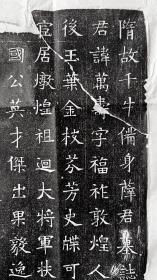 隋故千牛備身薛君墓誌
君諱萬壽字福祚敦煌人
後玉葉金枝芬芳史牒可
宦居燉煌祖迴大將軍扶
國公英才傑出果毅逸